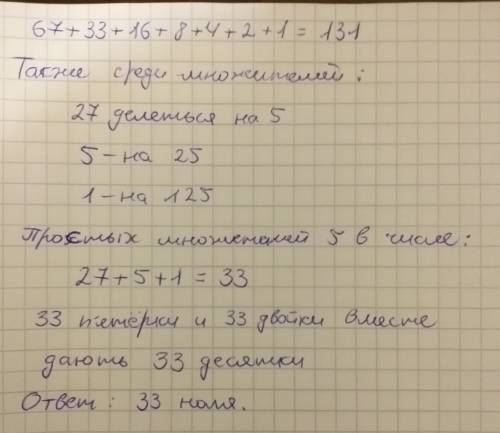 67+33+16+8+4+2+1 = 131
Также среди множителей:
27 делеться на 5
5 - на 25
1 - на 125
Простых множетелей 5 в числе:
27+5+1 = 33
33 п'етёрки и 33 двойки вместе
дають 33 десятки
Ответ: 33 ноля.